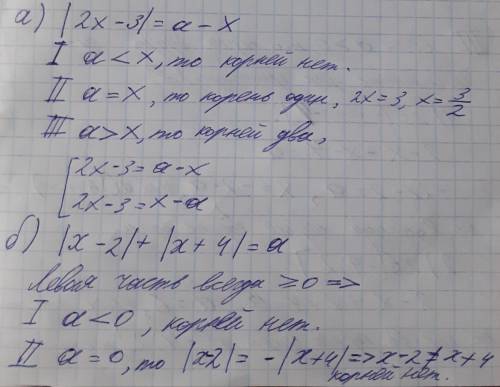 а) |2x-3| = a-x
I a<x, то корней нет.
II a=x, то корень один, 2x=3, x=3/2
III a>x, то корней два,
[2x-3=a-x
2x-3=x-a
б) |x-2|+|x+4|=a
Левая часть всегда ≥0 =>
I a<0, корней нет.
II a=0, то |x2|= -|x+4| => x-2≠x+4
корней нет.